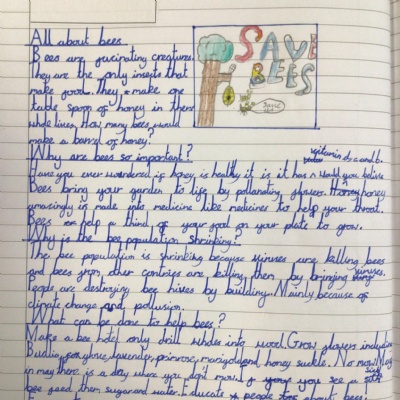 All about bees
SAVE BEES
Bees are fucinating creatures.
They are the only insects that
make good. They make one
table spoon of honey in there
whole lives. How many bees would
make a barrel of honey?
Why are bees so important?
vitamin d, c and b.
Have you ever wondered is honey is healthy it is it has would you believe
Bees bring your garden to life by pollanating flowers. honey
amazingly is made into medicine like medicines to help your throat.
Bees help a third of your food on your plate to grow.
Why is the bee population shrinking?
The bee population is shrinking because viruses are killing bees
and bees from other contries are killing them by bringing viruses.
People are destroying bee hives by building. Mainly because of
climate change and pollusion.
What can be done to help bees?
Make a bee hotel only drill wholes into wood. Grow flowers including
Budlia, foxglove, lavender, primrose, marigold and honey suckle. No mow May
in may there is a day where you don't mow. If you see a sick
bee feed them sugar and water. Educate people about bees.